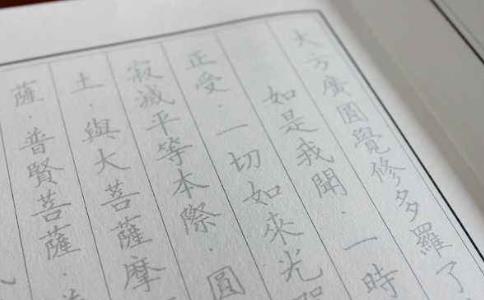 大方廣圓覺修多羅了
如是我聞．一時
正受．一切如來光
寂滅平等本際．圓
土．與大菩薩摩
薩．普賢菩薩．